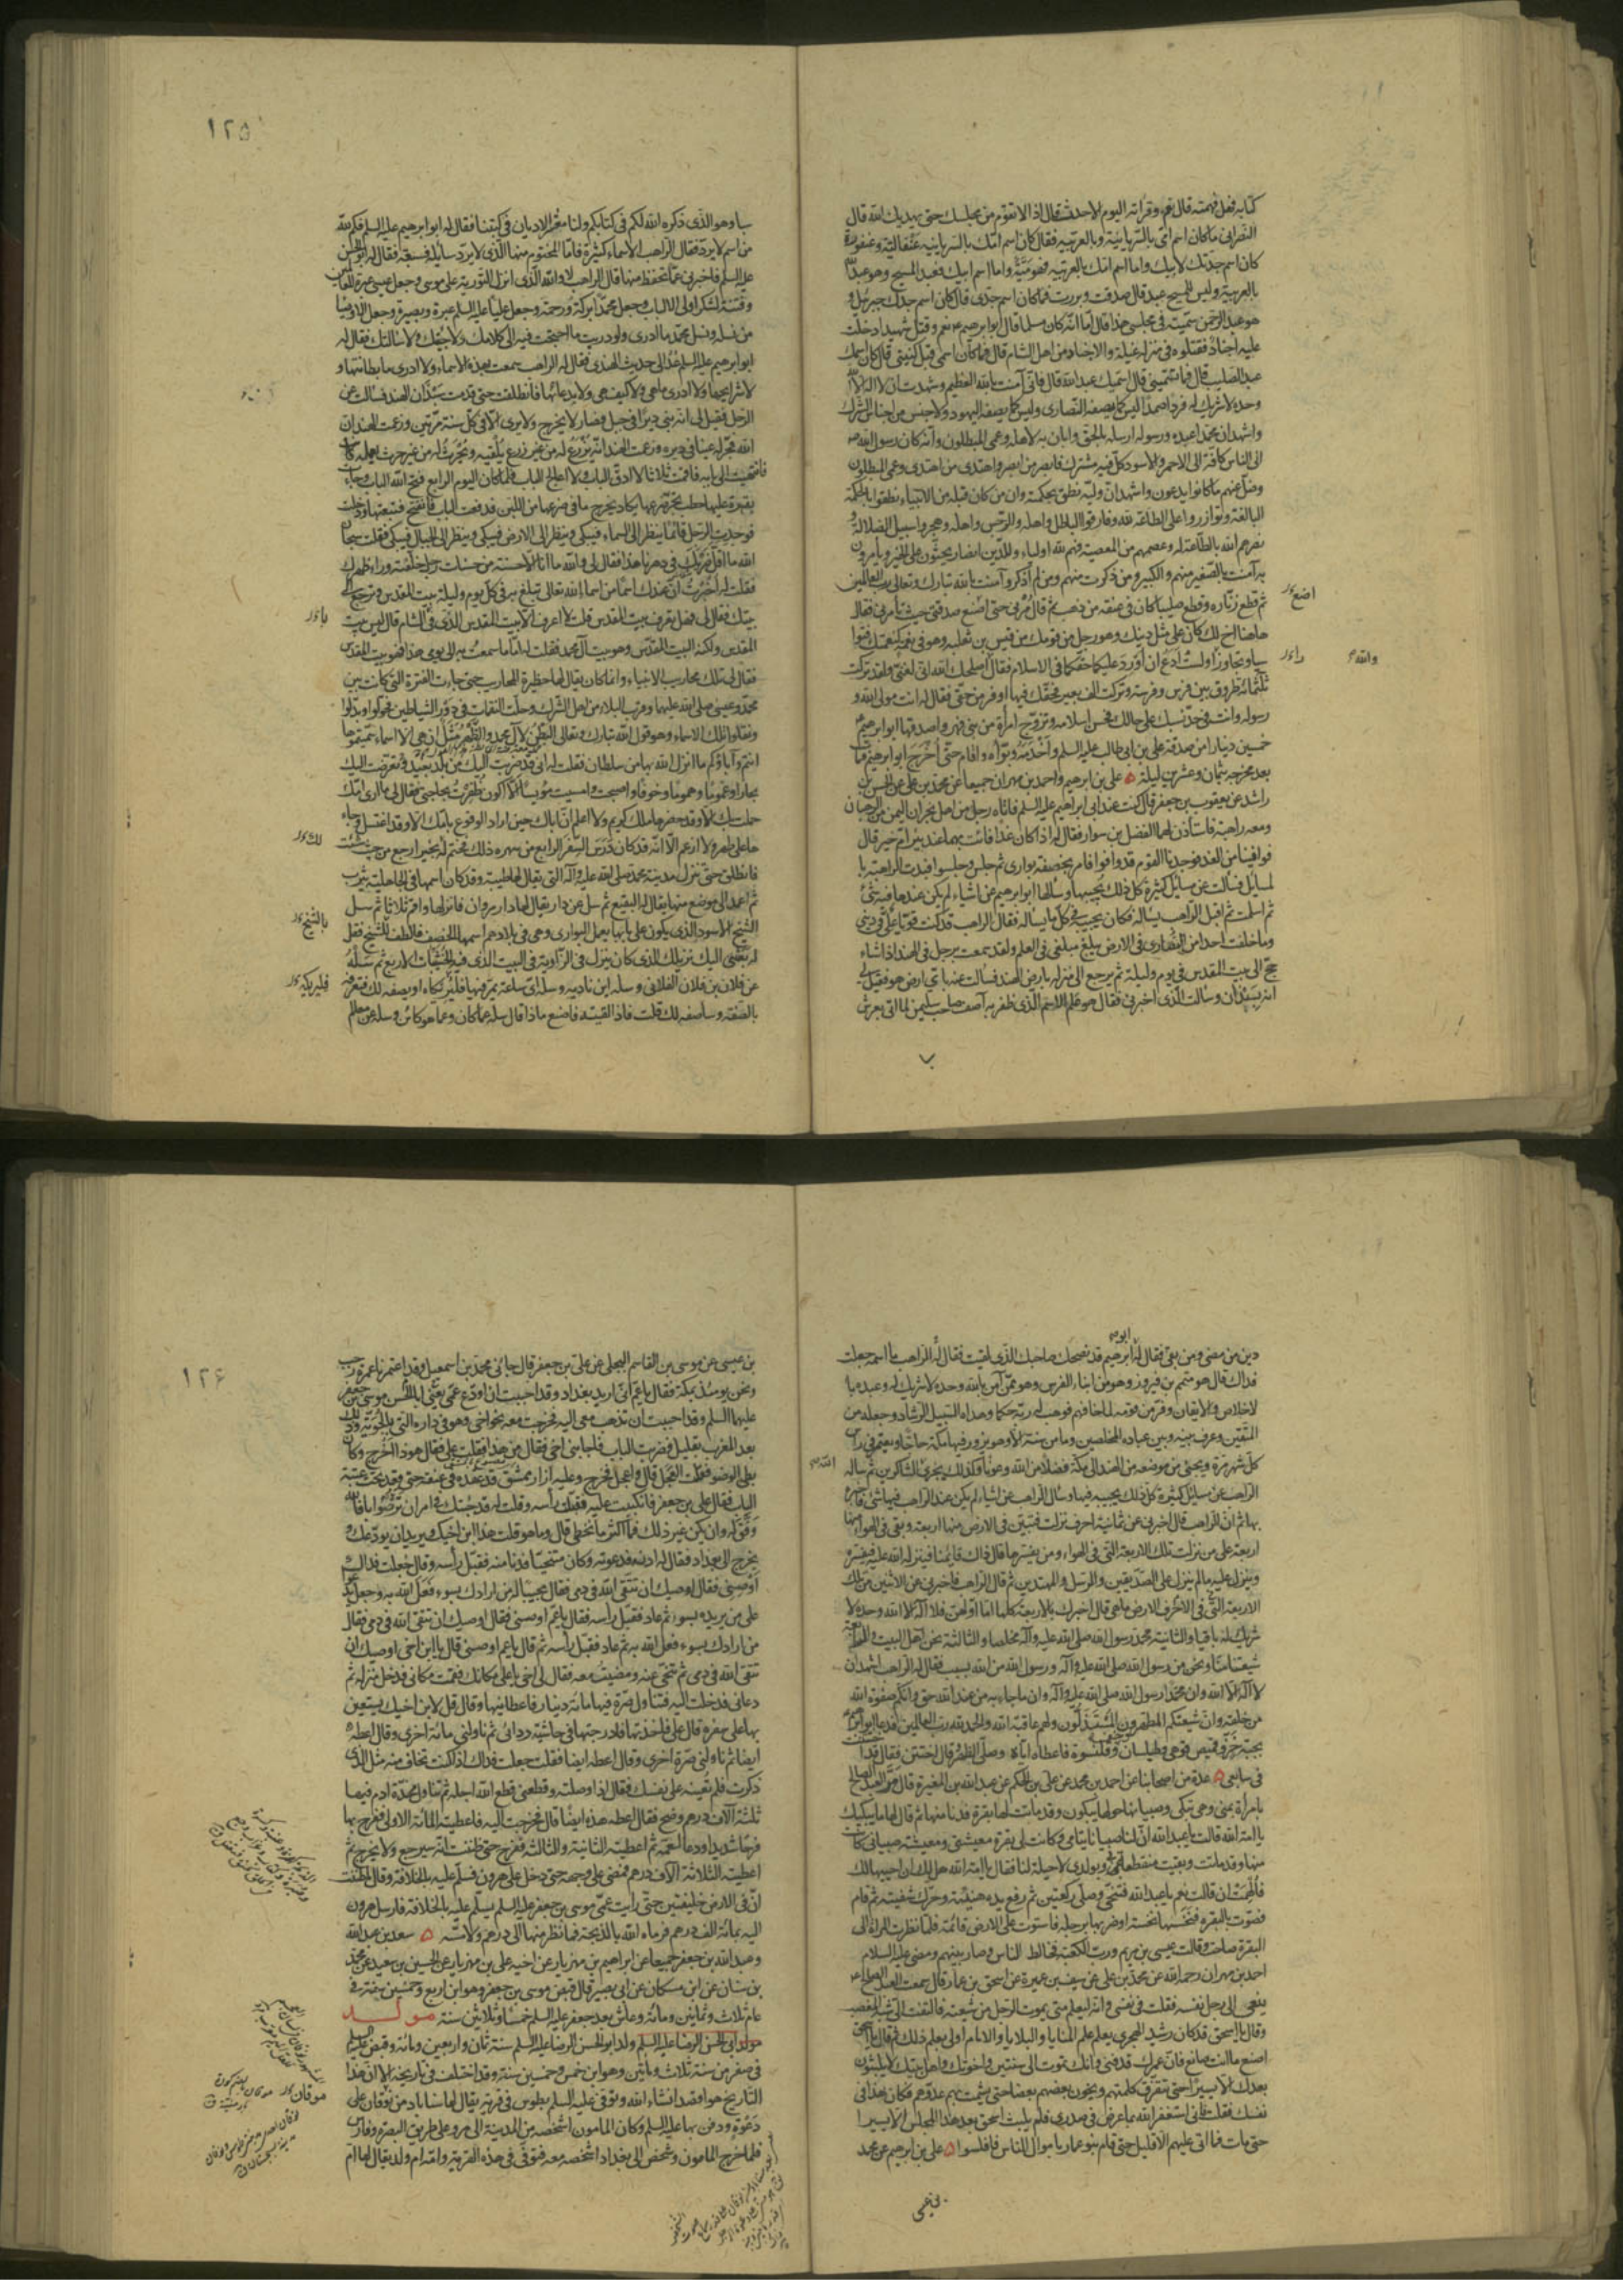 كتابه فهل فهمته قال نعم وقرأته اليوم الاحدث قال اذا لا تقوم من مجلسك حتى يهديك الله قال
النصراني ما كان اسم امي بالسريانية وبالعربيه فقال كان اسم امك بالسريانيه عنقالية وعنقورة
كان اسم جدتك لابيك واما اسم امك بالعربيه فهو ميّة واما اسم ابيك فعبد المسيح وهو عبد الله
بالعربية وليس للمسيح عبد قال صدقت وبررت فما كان اسم جدي قال كان اسم جدك جبرئيل و
هو عبد الرحمن سميته في مجلسي هذا قال اما انه كان مسلما قال ابو ابرهيم نعم وقتل شهيدا دخلت
عليه اجناد فقتلوه في منزله غيلة والاجناد من اهل الشام قال فما كان اسمي قبل كنيتي قال كان اسمك
عبد الصليب قال فما تسميني قال اسميك عبد الله قال فاني آمنت بالله العظيم وشهدت ان لا اله الا الله
وحده لا شريك له فردا صمدا ليس كما يصفه النصارى وليس كما يصفه اليهود ولا جنس من اجناس الشرك
واشهد ان محمدا عبده ورسوله ارسله بالحق وابان به لاهله وعمي المبطلون وانه كان رسول الله
الى الناس كافة الى الاحمر والاسود كل فيه مشترك فابصر من ابصر واهتدى من اهتدى وعمي المبطلون
وضل عنهم ما كانوا يدعون واشهد ان وليه نطق بحكمته وان من كان قبله من الانبياء نطقوا بالحكمة
البالغة وتوازروا على الطاعة لله وفارقوا الباطل واهله والرجس واهله وهجروا سبيل الضلالة و
نصرهم الله بالطاعة له وعصمهم من المعصية فهم لله اولياء وللدين انصار يحثون على الخير ويأمرون
به آمنت بالصغير منهم والكبير ومن ذكرت منهم ومن لم اذكر وآمنت بالله تبارك وتعالى رب العالمين
ثم قطع زناره وقطع صليبا كان في عنقه من ذهب ثم قال مرني حتى اضع صدقتي حيث تأمرني فقال
هاهنا اخ لك كان على مثل دينك وهو رجل من قومك من قيس بن ثعلبه وهو في نعمة كنعمتك فتوا
سيا وتجاورا ولست ادع ان اورد عليكما حقكما في الاسلام فقال اصلحك الله اني لغني ولقد تركت
ثلثمائة طروق بين فرس وفرسة وتركت الف بعير فحقك فيها اوفر من حقي فقال له انت مولى الله و
رسوله وانت في حد نسبك على حالك فحسن اسلامه وتزوج امرأة من بني فهر واصدقها ابو ابرهيم
خمسين دينارا من صدقة علي بن ابي طالب عليه السلم واخدمه وبوّاه واقام حتى اخرج ابو ابرهيم فمات
بعد مخرجه بثمان وعشرين ليلة ۵ علي بن ابرهيم واحمد بن مهران جميعا عن محمد بن علي عن الحسن بن
راشد عن يعقوب بن جعفر قال كنت عند ابي ابراهيم عليه السلم فاتاه رجل من اهل نجران اليمن من الرهبان
ومعه راهبة فاستأذن لهما الفضل بن سوار فقال له اذا كان غدا فائت بهما عند بئر ام خير قال
فوافينا من الغد فوجدنا القوم قد وافوا فامر بخصفة بواري ثم جلس وجلسوا فبدت الراهبة با
لمسايل فسألت عن مسايل كثيرة كل ذلك يجيبها وسألها ابو ابرهيم عن اشياء لم يكن عندها فيه شئ
ثم اسلمت ثم اقبل الراهب يسأله فكان يجيبه في كل ما يسأله فقال الراهب قد كنت قويا على ديني
وما خلفت احدا من النصارى في الارض يبلغ مبلغي في العلم ولقد سمعت برجل في الهند اذا شاء
حج الى بيت المقدس في يوم وليلة ثم يرجع الى منزله بارض الهند فسألت عنه باي ارض هو فقيل لي
انه بسبذان وسألت الذي اخبرني فقال هو علم الاسم الذي ظفر به آصف صاحب سليمن لما اتى بعرش
اضع
را
والله
۱۲۵
سبا وهو الذي ذكره الله لكم في كتابكم ولنا معشر الاديان في كتبنا فقال له ابو ابرهيم عليه السلم فكم لله
من اسم لا يرد فقال الراهب الاسماء كثيرة فاما المحتوم منها الذي لا يرد سايله فسبعة فقال له ابو الحسن
عليه السلم فاخبرني عما تحفظ منها قال الراهب لا والله الذي انزل التورية على موسى وجعل عيسى عبرة للعالمين
وفتنة لشكر اولى الالباب وجعل محمدا بركة ورحمة وجعل عليا عليه السلم عبرة وبصيرة وجعل الاوصيا
من نسله ونسل محمد ما ادري ولو دريت ما احتجت فيه الى كلامك ولا جئتك ولا سالتك فقال له
ابو ابرهيم عليه السلم عد الى حديث الهندي فقال له الراهب سمعت بهذه الاسماء ولا ادري ما بطانتها و
لا شرايعها ولا ادري ما هي ولا كيف هي ولا بدعائها فانطلقت حتى قدمت سبذان الهند فسالت عن
الرجل فقيل لي انه بنى ديرا في جبل فصار لا يخرج ولا يرى الا في كل سنة مرتين وزعمت الهند ان
الله فجر له عينا في ديره وزعمت الهند انه يزرع له من غير زرع يلقيه ويحرث له من غير حرث يعمله
فانتهيت الى بابه فاقمت ثلاثا لا ادق الباب ولا اعالج الباب فلما كان اليوم الرابع فتح الله الباب وجاءت
بقرة عليها حطب تجر ضرعها يكاد يخرج ما في ضرعها من اللبن فدفعت الباب فانفتح فتبعتها ودخلت
فوجدت الرجل قائما ينظر الى السماء فيبكي وينظر الى الارض فيبكي وينظر الى الجبال فيبكي فقلت سبحان
الله ما اقل ضربك في دهرنا هذا فقال لي والله ما انا الا حسنة من حسنات رجل خلفته وراء ظهرك
فقلت له اخبرت ان عندك اسما من اسماء الله تعالى تبلغ به في كل يوم وليلة بيت المقدس وترجع الى
بيتك فقال لي فهل تعرف بيت المقدس قلت لا اعرف الا بيت المقدس الذي في الشام قال ليس بيت
المقدس ولكنه البيت المقدس وهو بيت آل محمد فقلت له اما ما سمعت به الى يومي هذا فهو بيت المقدس
فقال لي تلك محاريب الانبياء وانما كان يقال لها حظيرة المحاريب حتى جاءت الفترة التي كانت بين
محمد وعيسى صلى الله عليهما وقرب البلاء من اهل الشرك وحلت النقمات في دور الشياطين فحولوا وبدلوا
ونقلوا تلك الاسماء وهو قول الله تبارك وتعالى البطن لآل محمد والظهر مثل ان هي الا اسماء سميتموها
انتم وآباؤكم ما انزل الله بها من سلطان فقلت له اني قد ضربت اليك من بلد بعيد وتعرضت اليك
بحارا وغموما وهموما وخوفا واصبحت وامسيت مؤيسا الا اكون ظفرت بحاجتي فقال لي ما ارى امك
حملت بك الا وقد حضرها ملك كريم ولا اعلم ان اباك حين اراد الوقوع بامك الا وقد اغتسل وجاء
ها على طهر ولا ازعم الا انه قد كان درس السفر الرابع من سهره ذلك فختم له بخير ارجع من حيث جئت
فانطلق حتى تنزل مدينة محمد صلى الله عليه وآله التي يقال لها طيبة وقد كان اسمها في الجاهلية يثرب
ثم اعمد الى موضع منها يقال له البقيع ثم سل عن دار يقال لها دار مروان فانزلها واقم ثلاثا ثم سل
الشيخ الاسود الذي يكون على بابها يعمل البواري وهي في بلادهم اسمها الخصف فالطف للشيخ فقل
له بعثني اليك نزيلك الذي كان ينزل في الزاوية في البيت الذي فيه الخشيبات الاربع ثم سله
عن فلان بن فلان الفلاني وسله اين ناديه وسله اي ساعة يمر فيها فليريكاه او يصفه لك فتعرفه
بالصفة وساصفه لك قلت فاذا لقيته فاصنع ماذا قال سله عما كان وعما هو كائن وسله عن معالم
با
لك
بالشيخ
فليريكه
دين من مضى ومن بقي فقال له ابو ابرهيم قد نصحك صاحبك الذي لقيت فقال له الراهب ما اسمه جعلت
فداك قال هو متمم بن فيروز وهو من ابناء الفرس وهو ممن آمن بالله وحده لا شريك له وعبده با
لاخلاص والايقان وفر من قومه لما خافهم فوهب له ربه حكما وهداه لسبيل الرشاد وجعله من
المتقين وعرف بينه وبين عباده المخلصين وما من سنة الا وهو يزور فيها مكة حاجا ويعتمر في راس
كل شهر مرة ويجئ من موضعه من الهند الى مكة فضلا من الله وعونا وكذلك يجزي الشاكرين ثم ساله
الراهب عن مسايل كثيرة كل ذلك يجيبه فيها وسال الراهب عن اشياء لم يكن عند الراهب فيها شئ فاخبره
بها ثم ان الراهب قال اخبرني عن ثمانية احرف نزلت فتبين في الارض منها اربعة وبقي في الهواء منها
اربعة على من نزلت تلك الاربعة التي في الهواء ومن يفسرها قال ذاك قائمنا فينزله الله عليه فيفسره
وينزل عليه ما لم ينزل على الصديقين والرسل والمهتدين ثم قال الراهب فاخبرني عن الاثنين من تلك
الاربعة التي في الارض ما هي قال اخبرك بالاربعة كلها اما اولهن فلا اله الا الله وحده لا
شريك له باقيا والثانية محمد رسول الله صلى الله عليه وآله مخلصا والثالثة نحن اهل البيت والرابعة
شيعتنا منا ونحن من رسول الله صلى الله عليه وآله ورسول الله من الله بسبب فقال له الراهب اشهد ان
لا اله الا الله وان محمدا رسول الله صلى الله عليه وآله وان ما جاء به من عند الله حق وانكم صفوة الله
من خلقه وان شيعتكم المطهرون المستذلون ولهم عاقبة الله والحمد لله رب العالمين فدعا ابو ابرهيم
بجبة خز وقميص قوهي وطيلسان وخف وقلنسوة فاعطاه اياه وصلى الظهر وقال اختتن فقال قد اختتنت
في سابعي ۵ عدة من اصحابنا عن احمد بن محمد عن علي بن الحكم عن عبد الله بن المغيرة قال مر العبد الصالح
بامرأة بمنى وهي تبكي وصبيانها حولها يبكون وقد ماتت لها بقرة فدنا منها ثم قال لها ما يبكيك
يا امة الله قالت يا عبد الله ان لنا صبيانا يتامى وكانت لي بقرة معيشتي ومعيشة صبياني كانت
منها وقد ماتت وبقيت منقطعا بي وبولدي لا حيلة لنا فقال يا امة الله هل لك ان احييها لك
فالهمت ان قالت نعم يا عبد الله فتنحى وصلى ركعتين ثم رفع يده هنيئة وحرك شفتيه ثم قام
فصوت بالبقرة فنخسها نخسة او ضربها برجله فاستوت على الارض قائمة فلما نظرت المراة الى
البقرة صاحت وقالت عيسى بن مريم ورب الكعبة فخالط الناس وصار بينهم ومضى عليه السلام
احمد بن مهران رحمه الله عن محمد بن علي عن سيف بن عميرة عن اسحق بن عمار قال سمعت العبد الصالح
ينعي الى رجل نفسه فقلت في نفسي وانه ليعلم متى يموت الرجل من شيعته فالتفت الي شبه المغضب
وقال يا اسحق قد كان رشيد الهجري يعلم علم المنايا والبلايا والامام اولى بعلم ذلك ثم قال يا اسحق
اصنع ما انت صانع فان عمرك قد فني وانك تموت الى سنتين واخوتك واهل بيتك لا يلبثون
بعدك الا يسيرا حتى تتفرق كلمتهم ويخون بعضهم بعضا حتى يشمت بهم عدوهم فكان هذا في
نفسك فقلت فاني استغفر الله بما عرض في صدري فلم يلبث اسحق بعد هذا المجلس الا يسيرا
حتى مات فما اتى عليهم الا قليل حتى قام بنو عمار باموال الناس فافلسوا ۵ علي بن ابرهيم عن محمد
بن عيسى
۱۲۶
بن عيسى عن موسى بن القاسم البجلي عن علي بن جعفر قال جاءني محمد بن اسمعيل وقد اعتمرنا عمرة رجب
ونحن يومئذ بمكة فقال يا عم اني اريد بغداد وقد احببت ان اودع عمي يعني ابا الحسن موسى بن جعفر
عليهما السلم وقد احببت ان تذهب معي اليه فخرجت معه نحو اخي وهو في داره التي بالحوبة وذلك
بعد المغرب بقليل فضربت الباب فاجابني اخي فقال من هذا فقلت علي فقال هو ذا اخرج وكان
بطئ الوضوء فقلت العجل قال واعجل فخرج وعليه ازار ممشق قد عقده في عنقه حتى قعد تحت عتبة
الباب فقال علي بن جعفر فانكببت عليه فقبلت رأسه وقلت له قد جئتك في امر ان تره صوابا فالله
وفق له وان يكن غير ذلك فما اكثر ما نخطي قال وما هو قلت هذا ابن اخيك يريد ان يودعك و
يخرج الى بغداد فقال له ادنه فدعوته وكان متنحيا فدنا منه فقبل رأسه وقال جعلت فداك
اوصني فقال اوصيك ان تتقي الله في دمي فقال مجيبا له من ارادك بسوء فعل الله به وجعل يدعو
على من يريده بسوء ثم عاد فقبل رأسه فقال يا عم اوصني فقال اوصيك ان تتقي الله في دمي فقال
من ارادك بسوء فعل الله به ثم عاد فقبل رأسه ثم قال يا عم اوصني قال يا ابن اخي اوصيك ان
تتقي الله في دمي ثم تنحى عنه ومضيت معه فقال لي اخي يا علي مكانك فقمت مكاني فدخل منزله ثم
دعاني فدخلت اليه فتناول صرة فيها مائة دينار فاعطانيها وقال قل لابن اخيك يستعين
بها على سفره قال علي فاخذتها فادرجتها في حاشية ردائي ثم ناولني مائة اخرى وقال اعطه
ايضا ثم ناولني صرة اخرى وقال اعطه ايضا فقلت جعلت فداك اذا كنت تخاف منه مثل الذي
ذكرت فلم تعينه على نفسك فقال اذا وصلته وقطعني قطع الله اجله ثم تناول مخدة ادم فيها
ثلثة آلاف درهم وضح فقال اعطه هذه ايضا قال فخرجت اليه فاعطيته المائة الاولى ففرح بها
فرحا شديدا ودعا لعمه ثم اعطيته الثانية والثالثة ففرح حتى ظننت انه سيرجع ولا يخرج ثم
اعطيته الثلاثة الآلاف درهم فمضى على وجهه حتى دخل على هرون فسلم عليه بالخلافة وقال ما ظننت
ان في الارض خليفتين حتى رايت عمي موسى بن جعفر عليه السلم يسلم عليه بالخلافة فارسل هرون
اليه بمائة الف درهم فرماه الله بالذبحة فما نظر منها الى درهم ولا مسه ۵ سعد بن عبد الله
وعبد الله بن جعفر جميعا عن ابراهيم بن مهزيار عن اخيه علي بن مهزيار عن الحسين بن سعيد عن محمد
بن سنان عن ابن مسكان عن ابي بصير قال قبض موسى بن جعفر وهو ابن اربع وخمسين سنة في
عام ثلاث وثمانين ومائة وعاش بعد جعفر عليه السلم خمسا وثلاثين سنة مولد
مولد ابي الحسن الرضا عليه السلم ولد ابو الحسن الرضا عليه السلم سنة ثمان واربعين ومائة وقبض عليه السلم
في صفر من سنة ثلاث ومأتين وهو ابن خمس وخمسين سنة وقد اختلف في تاريخه الا ان هذا
التاريخ هو اقصد انشاء الله وتوفي عليه السلم بطوس في قرية يقال لها سناباد من نوقان على
دعوة ودفن بها عليه السلم وكان المامون اشخصه من المدينة الى مرو على طريق البصرة وفارس
فلما خرج المامون وشخص الى بغداد اشخصه معه فتوفي في هذه القرية وامه ام ولد يقال لها ام
موقان